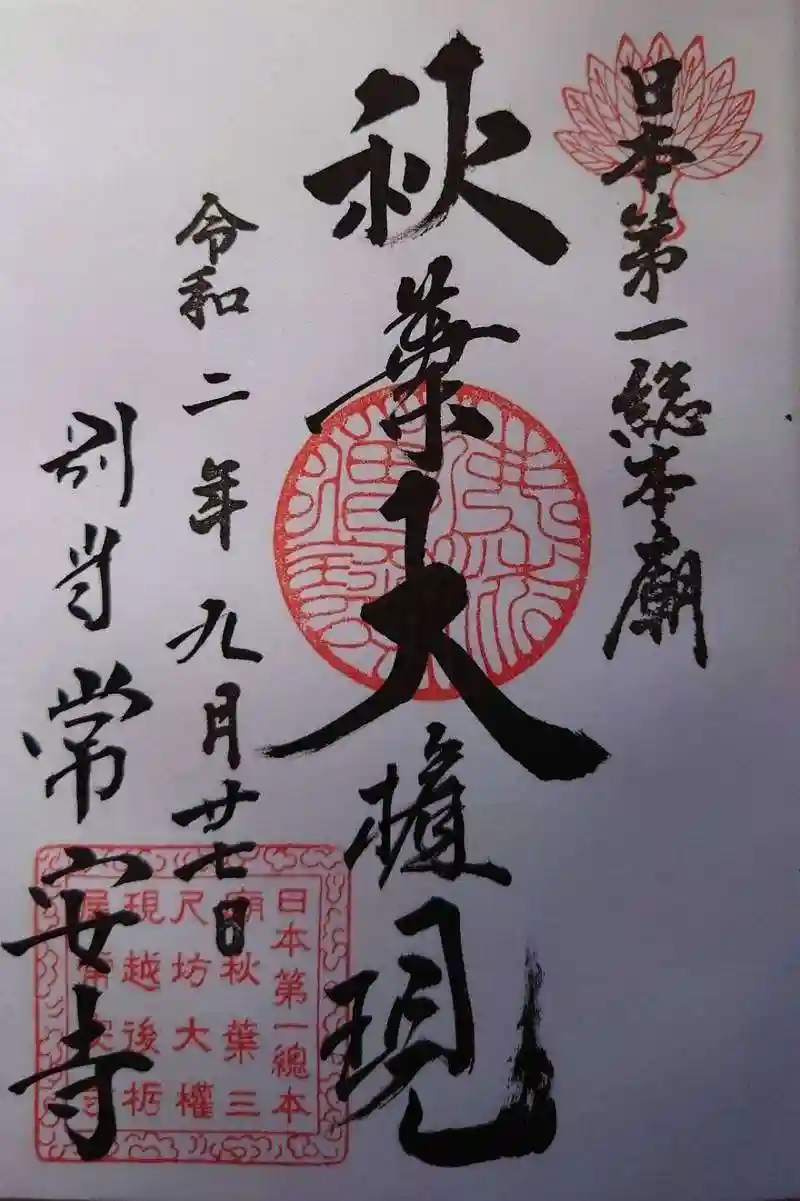 日本第一総本廟
秋葉大権現
令和二年九月廿七日
別当常安寺
日本第一總本
廟秋葉三
尺坊大權
現越後栃
尾常安寺